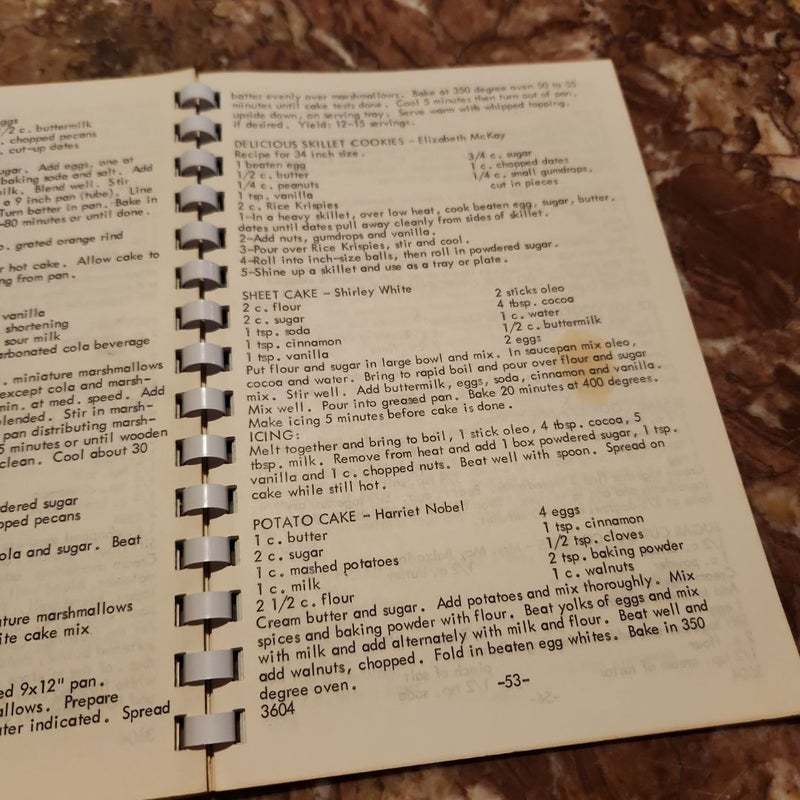 ggs
1/2 c. buttermilk
. chopped pecans
. cut-up dates
ugar. Add eggs, one at
baking soda and salt. Add
ilk. Blend well. Stir
a 9 inch pan (tube). Line
Turn batter in pan. Bake in
-80 minutes or until done.
p. grated orange rind
r hot cake. Allow cake to
ng from pan.
vanilla
shortening
sour milk
arbonated cola beverage
. miniature marshmallows
except cola and marsh-
min. at med. speed. Add
olended. Stir in marsh-
pan distributing marsh-
5 minutes or until wooden
clean. Cool about 30
dered sugar
pped pecans
ola and sugar. Beat
ature marshmallows
ite cake mix
ed 9x12" pan.
allows. Prepare
ater indicated. Spread
batter evenly over marshmallows. Bake at 350 degree oven 50 to 55
minutes until cake tests done. Cool 5 minutes then turn out of pan,
upside down, on serving tray. Serve warm with whipped topping,
if desired. Yield: 12-15 servings.
DELICIOUS SKILLET COOKIES - Elizabeth McKay
Recipe for 34 inch size.
1 beaten egg 3/4 c. sugar
1/2 c. butter 1 c. chopped dates
1/4 c. peanuts 1/4 c. small gumdrops,
1 tsp. vanilla cut in pieces
2 c. Rice Krispies
1-In a heavy skillet, over low heat, cook beaten egg, sugar, butter,
dates until dates pull away cleanly from sides of skillet.
2-Add nuts, gumdrops and vanilla.
3-Pour over Rice Krispies, stir and cool.
4-Roll into inch-size balls, then roll in powdered sugar.
5-Shine up a skillet and use as a tray or plate.
SHEET CAKE - Shirley White
2 c. flour 2 sticks oleo
2 c. sugar 4 tbsp. cocoa
1 tsp. soda 1 c. water
1 tsp. cinnamon 1/2 c. buttermilk
1 tsp. vanilla 2 eggs
Put flour and sugar in large bowl and mix. In saucepan mix oleo,
cocoa and water. Bring to rapid boil and pour over flour and sugar
mix. Stir well. Add buttermilk, eggs, soda, cinnamon and vanilla.
Mix well. Pour into greased pan. Bake 20 minutes at 400 degrees.
Make icing 5 minutes before cake is done.
ICING:
Melt together and bring to boil, 1 stick oleo, 4 tbsp. cocoa, 5
tbsp. milk. Remove from heat and add 1 box powdered sugar, 1 tsp.
vanilla and 1 c. chopped nuts. Beat well with spoon. Spread on
cake while still hot.
POTATO CAKE - Harriet Nobel
1 c. butter 4 eggs
2 c. sugar 1 tsp. cinnamon
1 c. mashed potatoes 1/2 tsp. cloves
1 c. milk 2 tsp. baking powder
2 1/2 c. flour 1 c. walnuts
Cream butter and sugar. Add potatoes and mix thoroughly. Mix
spices and baking powder with flour. Beat yolks of eggs and mix
with milk and add alternately with milk and flour. Beat well and
add walnuts, chopped. Fold in beaten egg whites. Bake in 350
degree oven.
3604
-53-